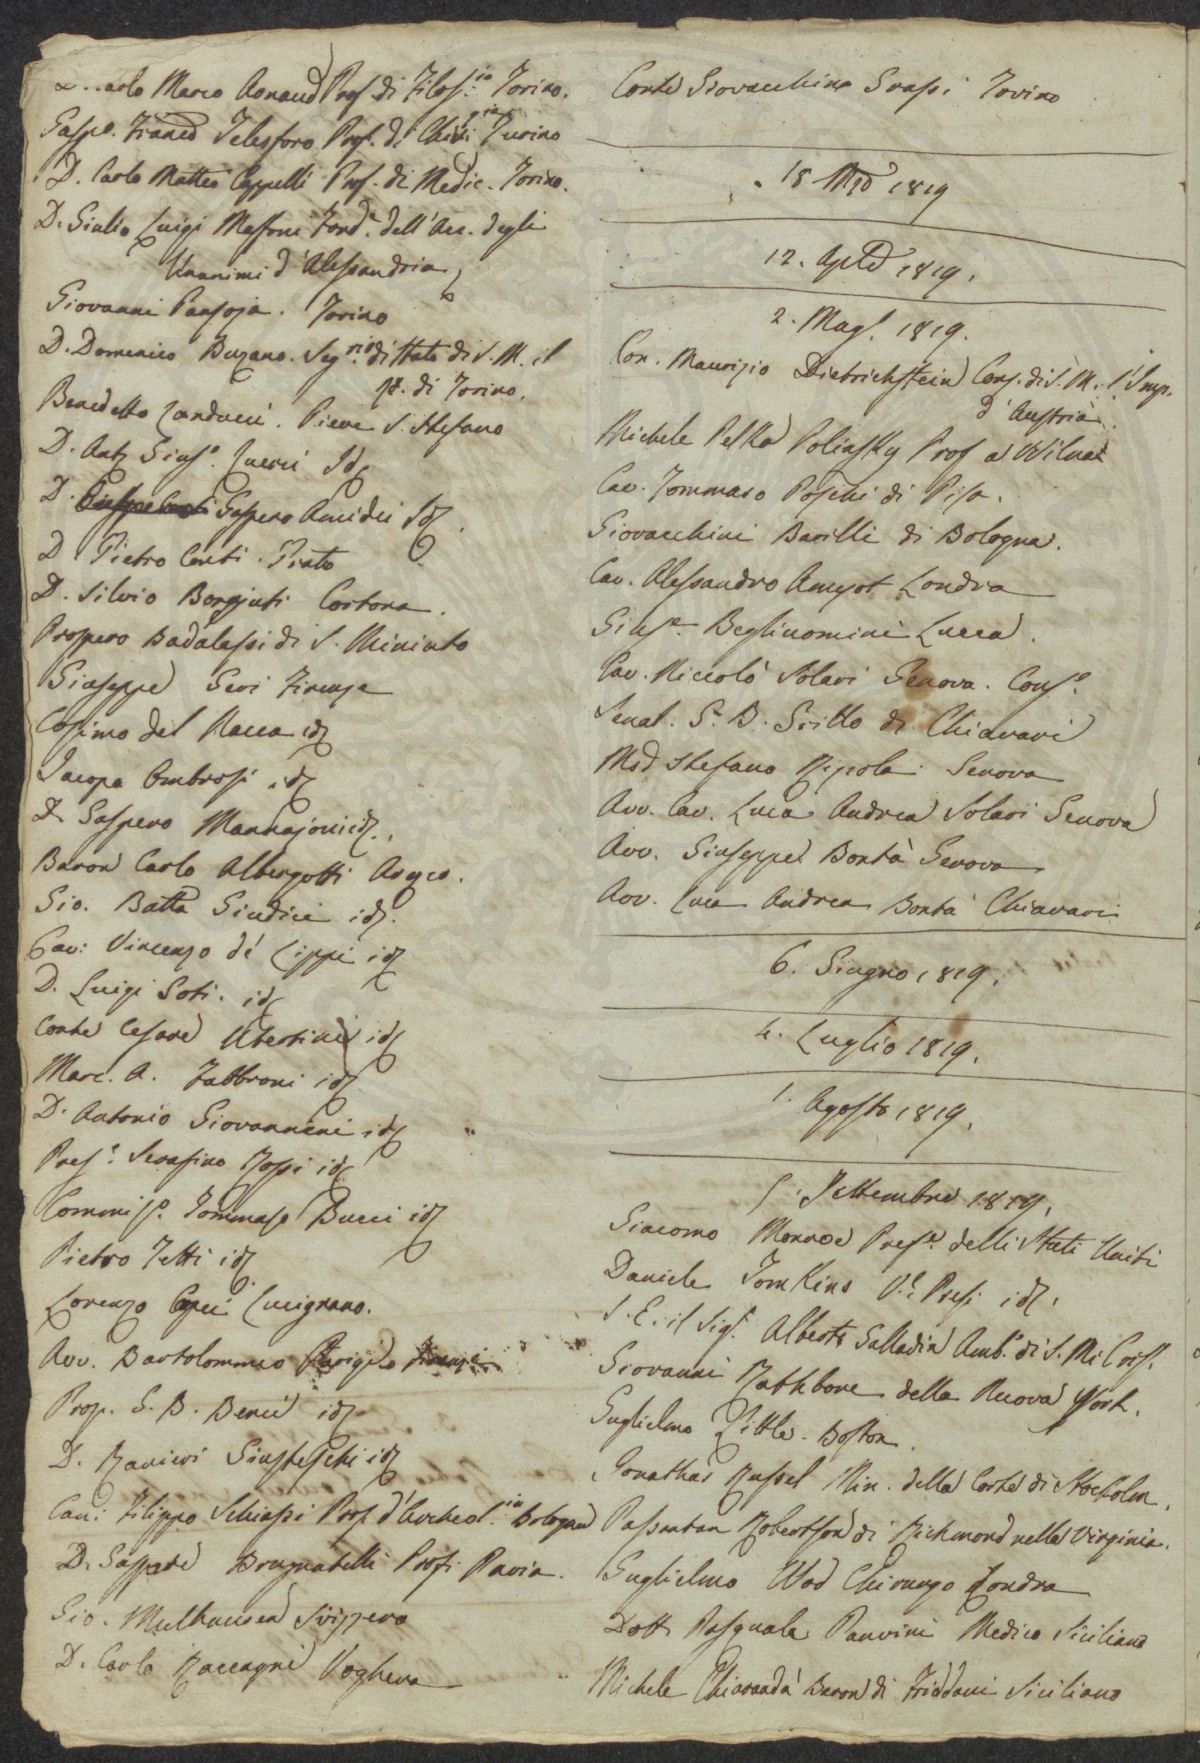 D. Carlo Marco Arnaud Prof. di Filos.ia Torino.
Gasp.e Franco Telesforo Prof. di Chir. Turino
D. Carlo Matteo Cappelli Prof. di Medic. Torino.
D. Giulio Luigi Massoni Fond.e dell'Acc. degli
Unanimi d'Alessandria
Giovanni Pansoja. Torino
D. Domenico Buzano. Seg.rio di Stato di S. M. il
R. di Torino.
Benedetto Carducci. Pieve S. Stefano
D. Ant. Gius.e Id.
D. Gaspero Amidei Id.
D. Pietro Conti. Prato
D. Silvio Borgiuti Cortona.
Prospero Badalassi di S. Miniato
Giuseppe Geri Firenze
Cosimo del Nacca id.
Jacopo Ombrosi id.
D. Gaspero Mannajoni id.
Baron Carlo Albergotti Arezzo.
Gio. Batta Giudici id.
Cav: Vincenzo de' Lippi id.
D. Luigi Goti. id.
Conte Cesare Ubertini id.
Marc. A. Fabbroni id.
D. Antonio Giovannini id.
Pres.e Serafino Rossi id.
Commiss.o Tommaso Bucci id.
Pietro Tetti id.
Lorenzo Capei Lucignano.
Avv. Bartolommeo Firenze
Prop. G. B. Benci id.
D. Ranieri id.
Can: Filippo Schiassi Prof. d'Archeol.ia Bologna
D. Gaspare Brugnatelli Prof. Pavia.
Gio. Mulhausen Svizzero
D. Carlo Raccagni Voghera
Conte Giovacchino Grassi Torino
18 Mzo 1819
12. Aple 1819.
2. Mag. 1819.
Con. Maurizio Dietrichstein Cons. di S. M. l'Imp.
d'Austria
Michele Pelka Polinsky Prof a Wilna
Cav. Tommaso Poschi di Pisa.
Giovacchini Barilli di Bologna.
Cav. Alessandro Amyot Londra
Gius.e Beglinomini Lucca.
Cav. Niccolò Solari Genova. Cons.e
Senat. G. B. Solari di Chiavari
Med Stefano Genova
Avv. Cav. Luca Andrea Solari Genova
Avv. Giuseppe Bontà Genova
Avv. Luca Andrea Bontà Chiavari
6. Giugno 1819.
4. Luglio 1819.
1. Agosto 1819.
5. Settembre 1819.
Giacomo Monroe Pres.e delli Stati Uniti
Daniele Tomkins V.e Presi. id.
S. E. il Sig.r Alberto Galladin Amb.e di S. M. Cris.
Giovanni Rathbone della Nuova York.
Guglielmo Little. Boston.
Jonathas Russel Min. della Corte di Stockolm.
Robertson di Richmond nella Virginia.
Guglielmo Wod Chirurgo Londra
Dott Pasquale Panvini Medico Siciliano
Michele Chiarandà Baron di Friddani Siciliano